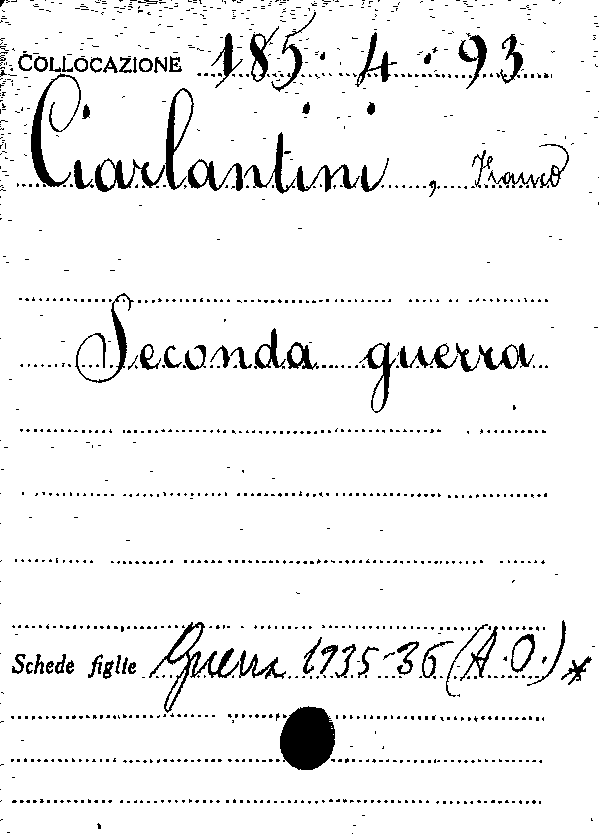 COLLOCAZIONE 185.4.93
Ciarlantini, Franco
Seconda guerra
Schede figlie Guerra 1935-36 (A.O.) *